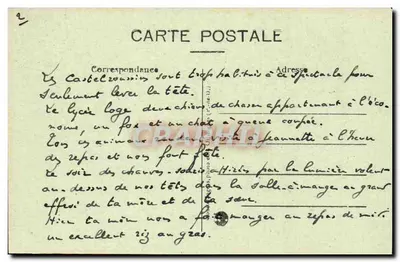 2
CARTE POSTALE
Correspondance
Adresse
Les Castelroussins sont trop habitués à ce spectacle pour
seulement lever la tête.
Le lycée loge deux chiens de chasse appartenant à l'éco-
nome, un fox et un chat à queue coupée.
Tous ces animaux rendent visite à Jeannette à l'heure
des repas et nous font fête.
Le soir des chauves-souris attirées par la lumière volent
au-dessus de nos têtes dans la salle à manger au grand
effroi de ta mère et de ta sœur.
Hier ta mère nous a fait manger au repas de midi
un excellent riz au gras.